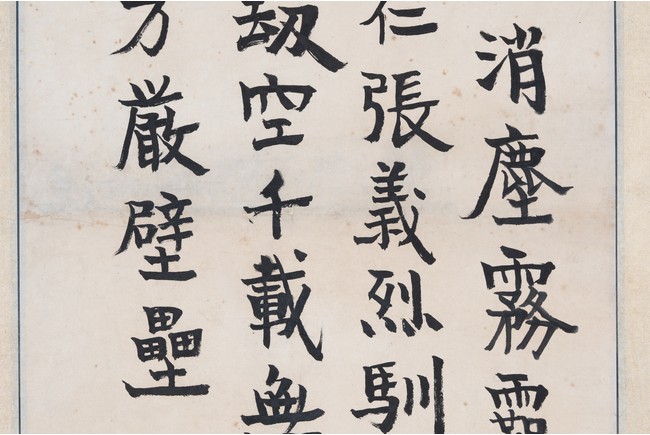 消塵霧
仁張義烈馴
空千載無
方厳壁壘